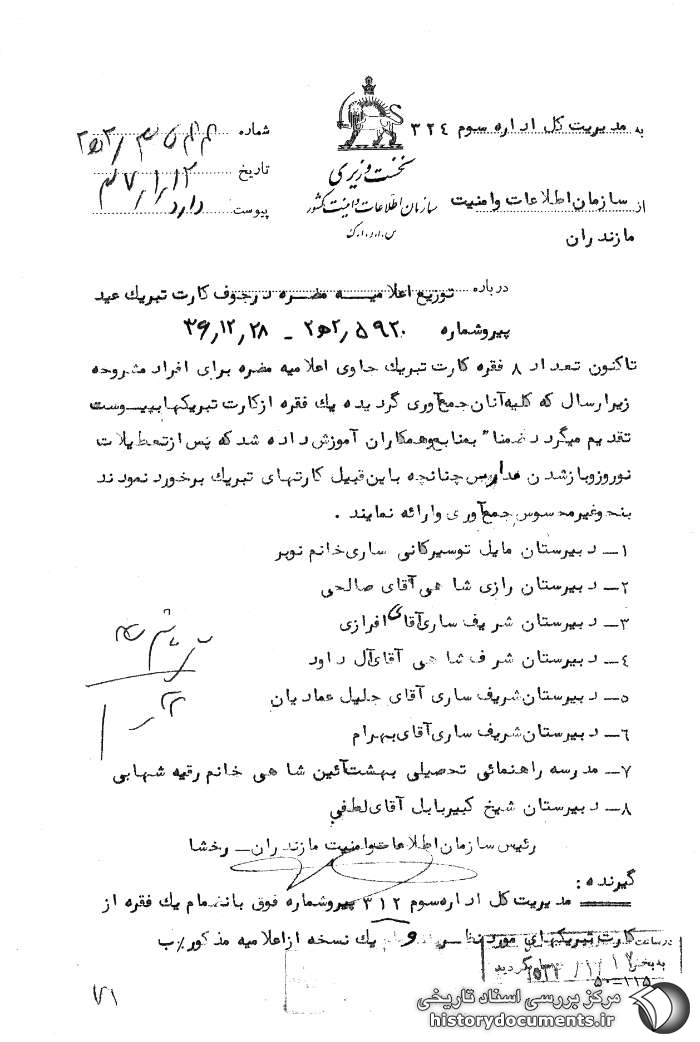 به مدیریت کل اداره سوم ۳۲٤
شماره
از سازمان اطلاعات و امنیت
مازندران
نخست وزیری
سازمان اطلاعات و امنیت کشور
س.ا.و.ا.ک
تاریخ ۳۷/۱/۱۲
پیوست دارد
درباره توزیع اعلامیه مضره درجوف کارت تبریك عید
پیروشماره ۵۹۲۰/۲ه۲ – ۳۶/۱۲/۲۸
تاکنون تعداد ۸ فقره کارت تبریك حاوی اعلامیه مضره برای افراد مشروحه
زیرارسال که کلیه آنان جمع‌آوری گردیده یك فقره ازکارت تبریکها بپیوست
تقدیم میگردد ضمنا" بمنابع وهمکاران آموزش داده شد که پس ازتعطیلات
نوروزوبازشدن مدارس چنانچه باین قبیل کارتهای تبریك برخورد نمودند
بنحوغیرمحسوس جمع‌آوری وارائه نمایند .
۱– دبیرستان مایل توسیرکانی ساری خانم نوبر
۲– دبیرستان رازی شاهی آقای صالحی
۳– دبیرستان شریف ساری آقای افرازی
٤– دبیرستان شرف شاهی آقای آل داود
۵– دبیرستان شریف ساری آقای جلیل عمادیان
٦– دبیرستان شریف ساری آقای بهرام
۷– مدرسه راهنمائی تحصیلی بهشت آئین شاهی خانم رقیه شهابی
۸– دبیرستان شیخ کبیربابل آقای لطفی
رئیس سازمان اطلاعات وامنیت مازندران – رخشا
گیرنده :
مدیریت کل اداره سوم ۳۱۲ پیروشماره فوق بانضمام یك فقره از
کارت تبریکهای موردنظر و یك نسخه ازاعلامیه مذکور٪ب
در ساعت
به بخش
گردید
۵۰–۱۱۵
۷۱
مرکز بررسی اسناد تاریخی
historydocuments.ir